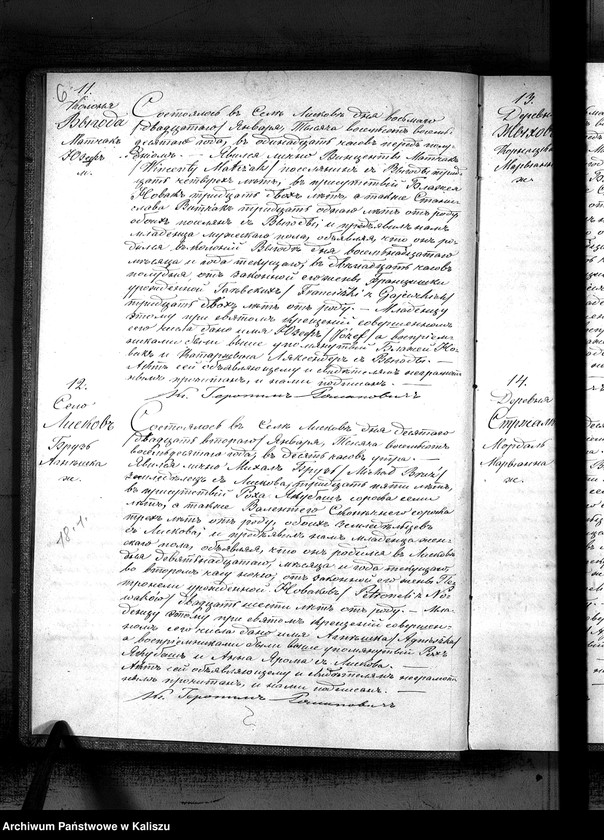 6
11.
Колонья
Выгода
Матчак
Юзефъ
м.
Состоялось въ Селѣ Лисковѣ дня восьмаго
/двадцатаго/ Января, Тысяча восемьсотъ восемь-
десятаго года, въ одинадцать часовъ передъ полу-
днемъ. – Явился лично Винцентій Матчакъ
/Wincenty Matczak/ поселянинъ съ Выгоды, трид-
цать четырехъ лѣтъ, въ присутствіи Влажея
Новакъ тридцать двохъ лѣтъ, а также Станис-
лава тридцать одного лѣтъ отъ роду,
обоихъ поселянъ съ Выгоды; и предъявилъ намъ
младенца мужескаго пола, объявляя, что онъ ро-
дился въ колоніи Выгодѣ дня восемьнадцатаго
мѣсяца и года текущаго, въ двѣнадцать часовъ
полудня отъ законной его жены Францишки
урожденной /Franciszki z /
тридцать двохъ лѣтъ отъ роду. – Младенцу
этому при святомъ крещеніи совершенномъ
сего числа дано имя Юзефъ /Józef/ а воспріем-
никами были выше упомянутый Влажей Но-
вакъ и Катаржина съ Выгоды. –
Актъ сей объявляющему и свидѣтелямъ неграмот-
нымъ прочитанъ, и нами подписанъ. –
Кс. Геронимъ Романовичъ
12.
Село
Лисковъ
Брузь
Агнѣшка
ж.
18. 1.
Состоялось въ Селѣ Лисковѣ дня десятаго
/двадцать втораго/ Января, Тысяча восемьсотъ
восемьдесятаго года, въ десять часовъ утра.
Явился лично Михалъ Брузь /Michał Bruź/
земледѣлецъ съ Лискова, тридцать пяти лѣтъ,
въ присутствіи Роха Якубашъ сорока семи
лѣтъ, а также Валентего сорока
трехъ лѣтъ отъ роду, обоихъ земледѣльцевъ
съ Лискова; и предъявилъ намъ младенца жен-
скаго пола, объявляя, что онъ родился въ Лисковѣ
дня девятьнадцатаго, мѣсяца и года текущаго,
во второмъ часу ночи, отъ законной его жены Пе-
тронели урожденной Новаковъ /Petroneli z No-
waków/ двадцать шести лѣтъ отъ роду. – Мла-
денцу этому при святомъ крещеніи совершен-
номъ сего числа дано имя Агнѣшка /Agnieszka/
а воспріемниками были выше упомянутый Рохъ
Якубашъ и Анна съ Лискова.
Актъ сей объявляющему и свидѣтелямъ неграмот-
нымъ прочитанъ, и нами подписанъ. –
Кс. Геронимъ Романовичъ
13.
Деревня
14.
Деревня
Марьянна
ж.
Archiwum Państwowe w Kaliszu